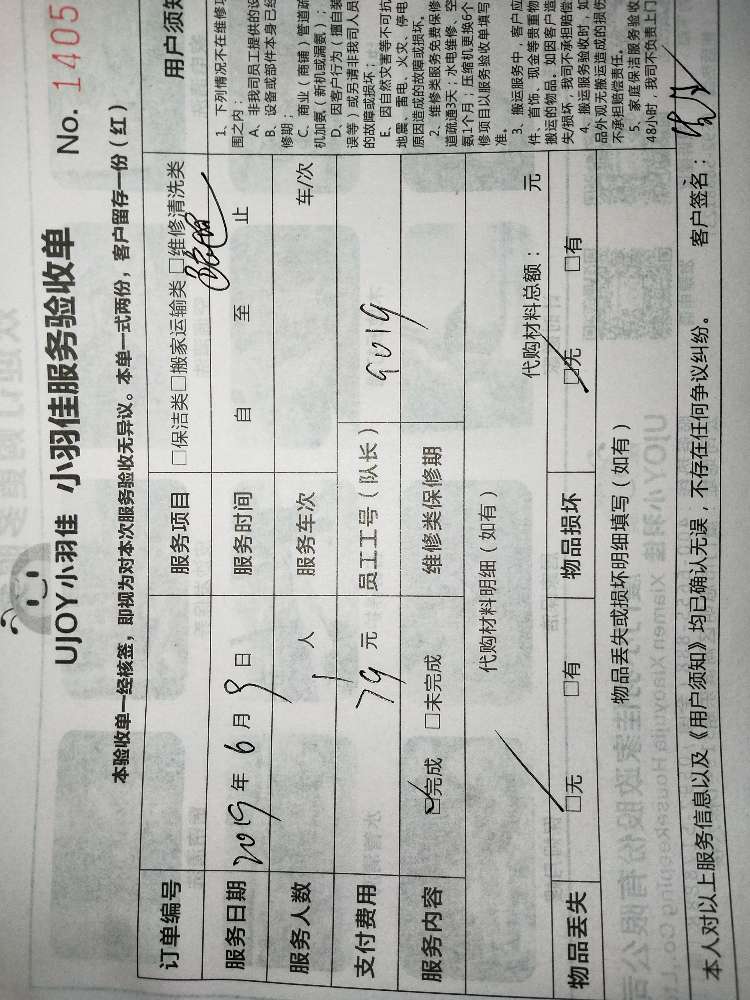 UJOY小羽佳 小羽佳服务验收单
No. 1405
本验收单一经核签，即视为对本次服务验收无异议。本单一式两份，客户留存一份（红）
订单编号 服务项目 □保洁类□搬家运输类 □维修清洗类
服务日期 2019年6月9日 服务时间 自 至 止
服务人数 1人 服务车次 车/次
支付费用 79元 员工工号（队长） 9019
服务内容 ☑完成 □未完成 维修类保修期
代购材料明细（如有） 代购材料总额： 元
物品丢失 ☑无 □有 物品损坏 ☑无 □有
物品丢失或损坏明细填写（如有）
本人对以上服务信息以及《用户须知》均已确认无误，不存在任何争议纠纷。 客户签名：
用户须知
1、下列情况不在维修
围之内：
A、非我司员工提供的设
B、设备或部件本身已经
修期；
C、商业（商铺）管道疏
机加氨（新机或漏氨）；
D、因客户行为（擅自装
误等）或另请非我司人员
的故障或损坏；
E、因自然灾害等不可抗
地震、雷电、火灾、停电
原因造成的故障或损坏。
2、维修类服务免费保修
道疏通3天；水电维修、空
氨1个月；压缩机更换6个
修项目以服务验收单填写
准。
3、搬运服务中，客户应
件、首饰、现金等贵重物
搬运的物品。如因客户造
失/损坏，我司不承担赔偿
4、搬运服务验收时，如
品外观无搬运造成的损伤
不承担赔偿责任。
5、家庭保洁服务验收
48小时，我司不负责上门